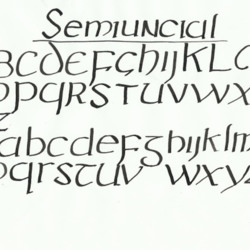 Semiuncial
BCDEFGHIJKLC
OPQRSTUVWX
abcdefghijklm
opqrstuv wxyz